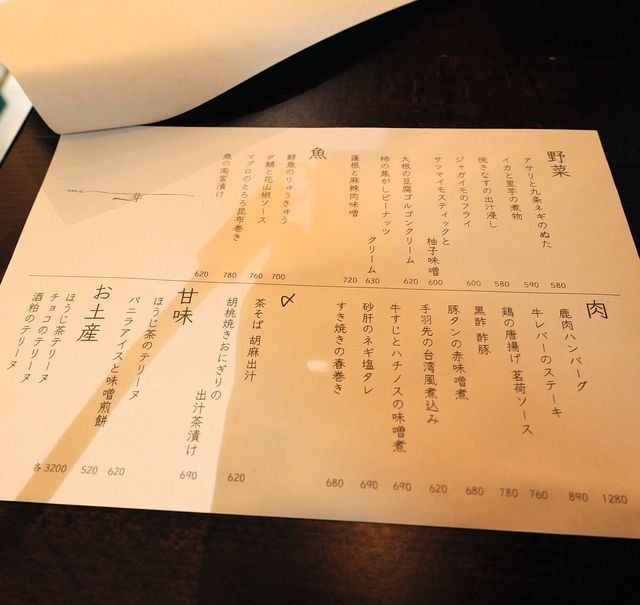 野菜
アサリと九条ネギのぬた 580
イカと里芋の煮物 590
焼きなすの出汁浸し 580
ジャガイモのフライ 600
サツマイモスティックと
柚子味噌 600
大根の豆腐ゴルゴンクリーム 620
柿の焦がしピーナッツ
クリーム 630
蓮根と麻辣肉味噌 720
魚
鮮魚のりゅうきゅう 700
〆鯖と花山椒ソース 760
マグロのとろろ昆布巻き 780
魚の南蛮漬け 620
肉
鹿肉ハンバーグ 1280
牛レバーのステーキ 890
鶏の唐揚げ 茗荷ソース 760
黒酢 酢豚 780
豚タンの赤味噌煮 680
手羽先の台湾風煮込み 620
牛すじとハチノスの味噌煮 690
砂肝のネギ塩タレ 690
すき焼きの春巻き 680
〆
茶そば 胡麻出汁 620
胡桃焼きおにぎりの
出汁茶漬け 690
甘味
ほうじ茶のテリーヌ 620
バニラアイスと味噌煎餅 520
お土産
ほうじ茶テリーヌ
チョコのテリーヌ
酒粕のテリーヌ 各3200